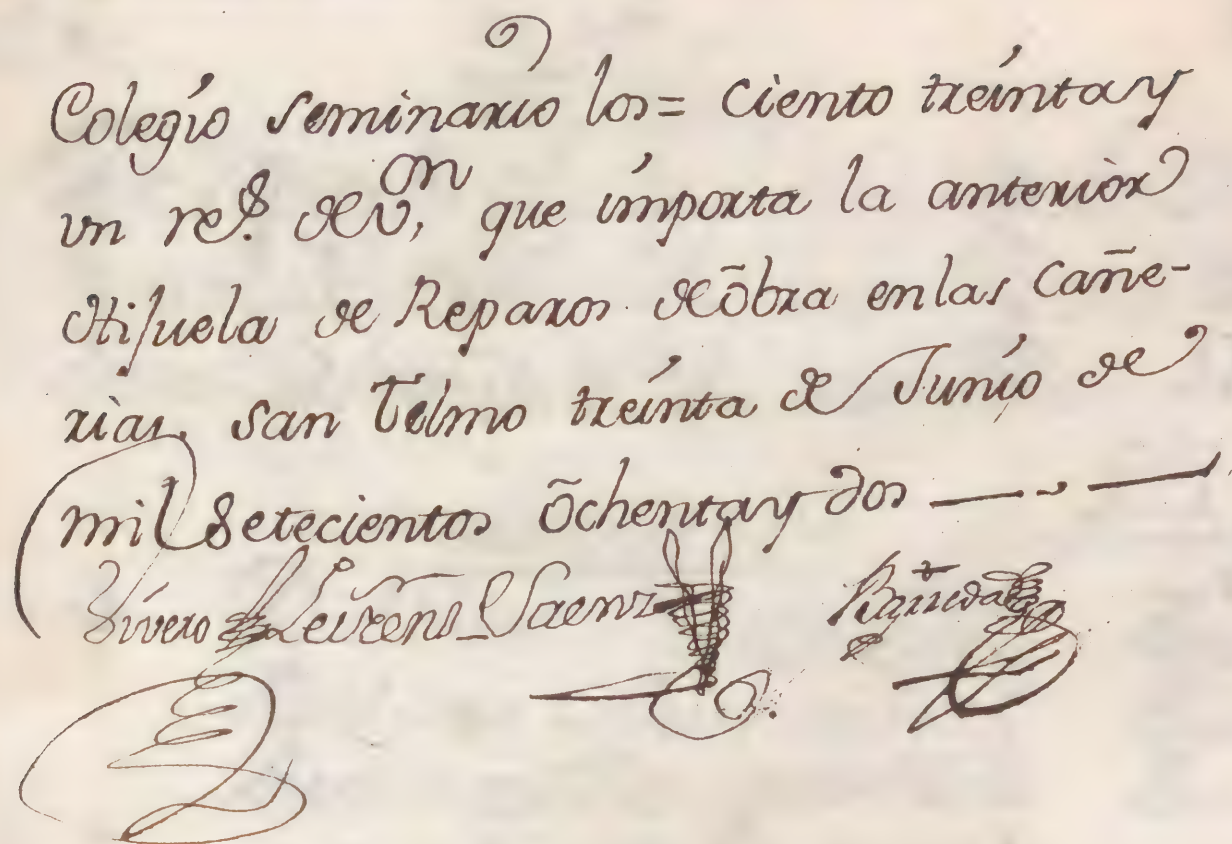 Colegio seminario los = ciento treinta y
un rs. de vn, que importa la anterior
Hijuela de Reparos de õbra en las Cañe-
rias. San Telmo treinta de Junio de
mil Setecientos õchenta y dos
Vivero Saenz